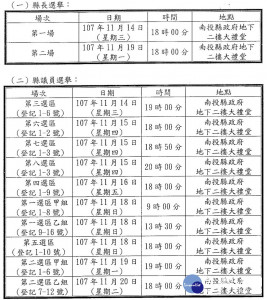 (一)縣長選舉：
場次 日期 時間 地點
第一場 107年11月14日 (星期三) 18時00分 南投縣政府地下二樓大禮堂
第二場 107年11月19日 (星期一) 18時00分 南投縣政府地下二樓大禮堂
(二)縣議員選舉：
場次 日期 時間 地點
第三選區 (登記1-6號) 107年11月14日 (星期三) 19時00分 南投縣政府地下二樓大禮堂
第六選區 (登記1-2號) 107年11月15日 (星期四) 18時00分 南投縣政府地下二樓大禮堂
第七選區 (登記1-3號) 107年11月15日 (星期四) 18時50分 南投縣政府地下二樓大禮堂
第八選區 (登記1-3號) 107年11月15日 (星期四) 20時00分 南投縣政府地下二樓大禮堂
第四選區 (登記1-9號) 107年11月16日 (星期五) 18時00分 南投縣政府地下二樓大禮堂
第一選區甲組 (登記1-8號) 107年11月18日 (星期日) 9時00分 南投縣政府地下二樓大禮堂
第一選區乙組 (登記9-16號) 107年11月18日 (星期日) 13時30分 南投縣政府地下二樓大禮堂
第五選區 (登記1-10號) 107年11月18日 (星期日) 18時00分 南投縣政府地下二樓大禮堂
第二選區甲組 (登記1-6號) 107年11月19日 (星期一) 19時00分 南投縣政府地下二樓大禮堂
第二選區乙組 (登記7-12號) 107年11月20日 (星期二) 18時00分 南投縣政府地下二樓大禮堂